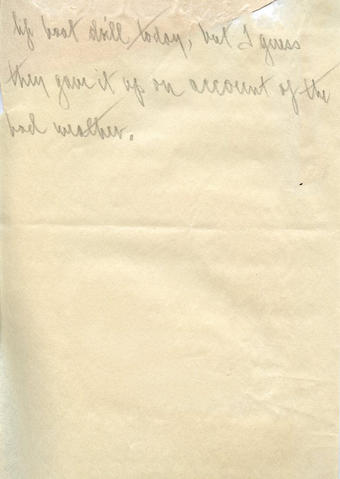 of boat drill today, but I guess
they gave it up on account of the
bad weather.